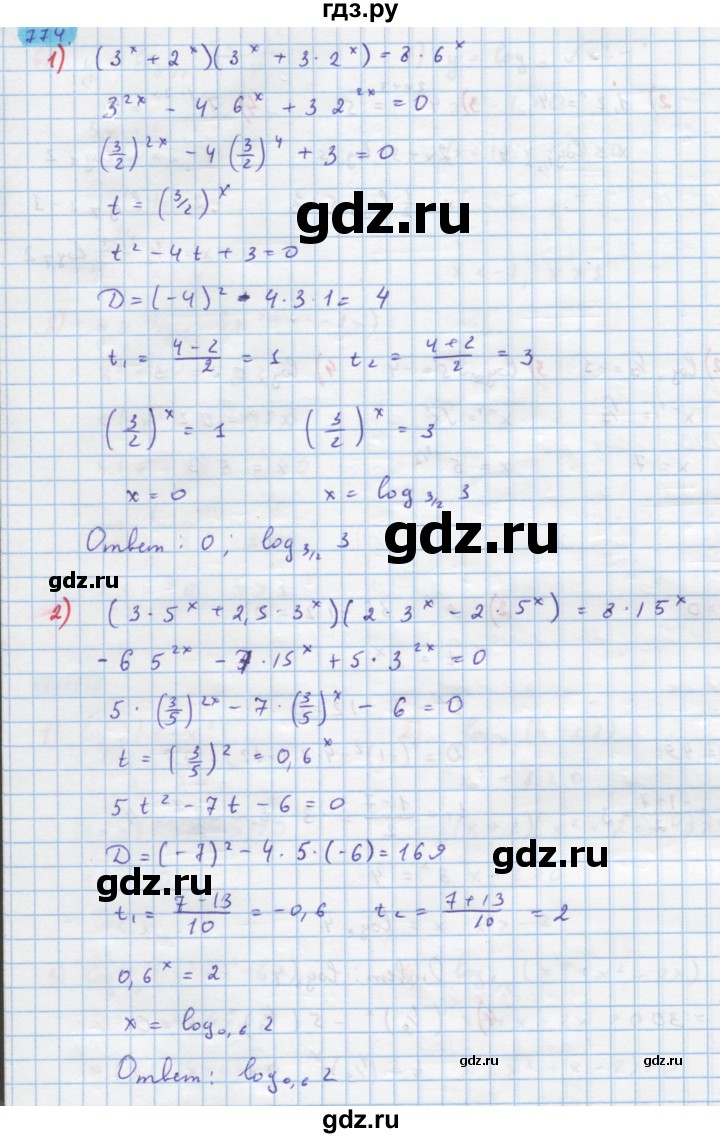 гдз.ру
774.
1) (3^x + 2^x)(3^x + 3·2^x) = 8·6^x
3^{2x} - 4 6^x + 3 2^{2x} = 0
(3/2)^{2x} - 4 (3/2)^4 + 3 = 0
t = (3/2)^x
gdz.ru
t² - 4t + 3 = 0
D = (-4)² - 4·3·1 = 4
t₁ = (4-2)/2 = 1    t₂ = (4+2)/2 = 3
(3/2)^x = 1    (3/2)^x = 3
x = 0    x = log_{3/2} 3
Ответ: 0; log_{3/2} 3
gdz.ru
gdz.ru
2) (3·5^x + 2,5·3^x)(2·3^x - 2·5^x) = 8·15^x
-6 5^{2x} - 7·15^x + 5·3^{2x} = 0
5·(3/5)^{2x} - 7·(3/5)^x - 6 = 0
t = (3/5)^2 = 0,6^x
5t² - 7t - 6 = 0
D = (-7)² - 4·5·(-6) = 169
gdz.ru
gdz.ru
t₁ = (7-13)/10 = -0,6    t₂ = (7+13)/10 = 2
0,6^x = 2
x = log_{0,6} 2
gdz.ru
gdz.ru
Ответ: log_{0,6} 2
gdz.ru